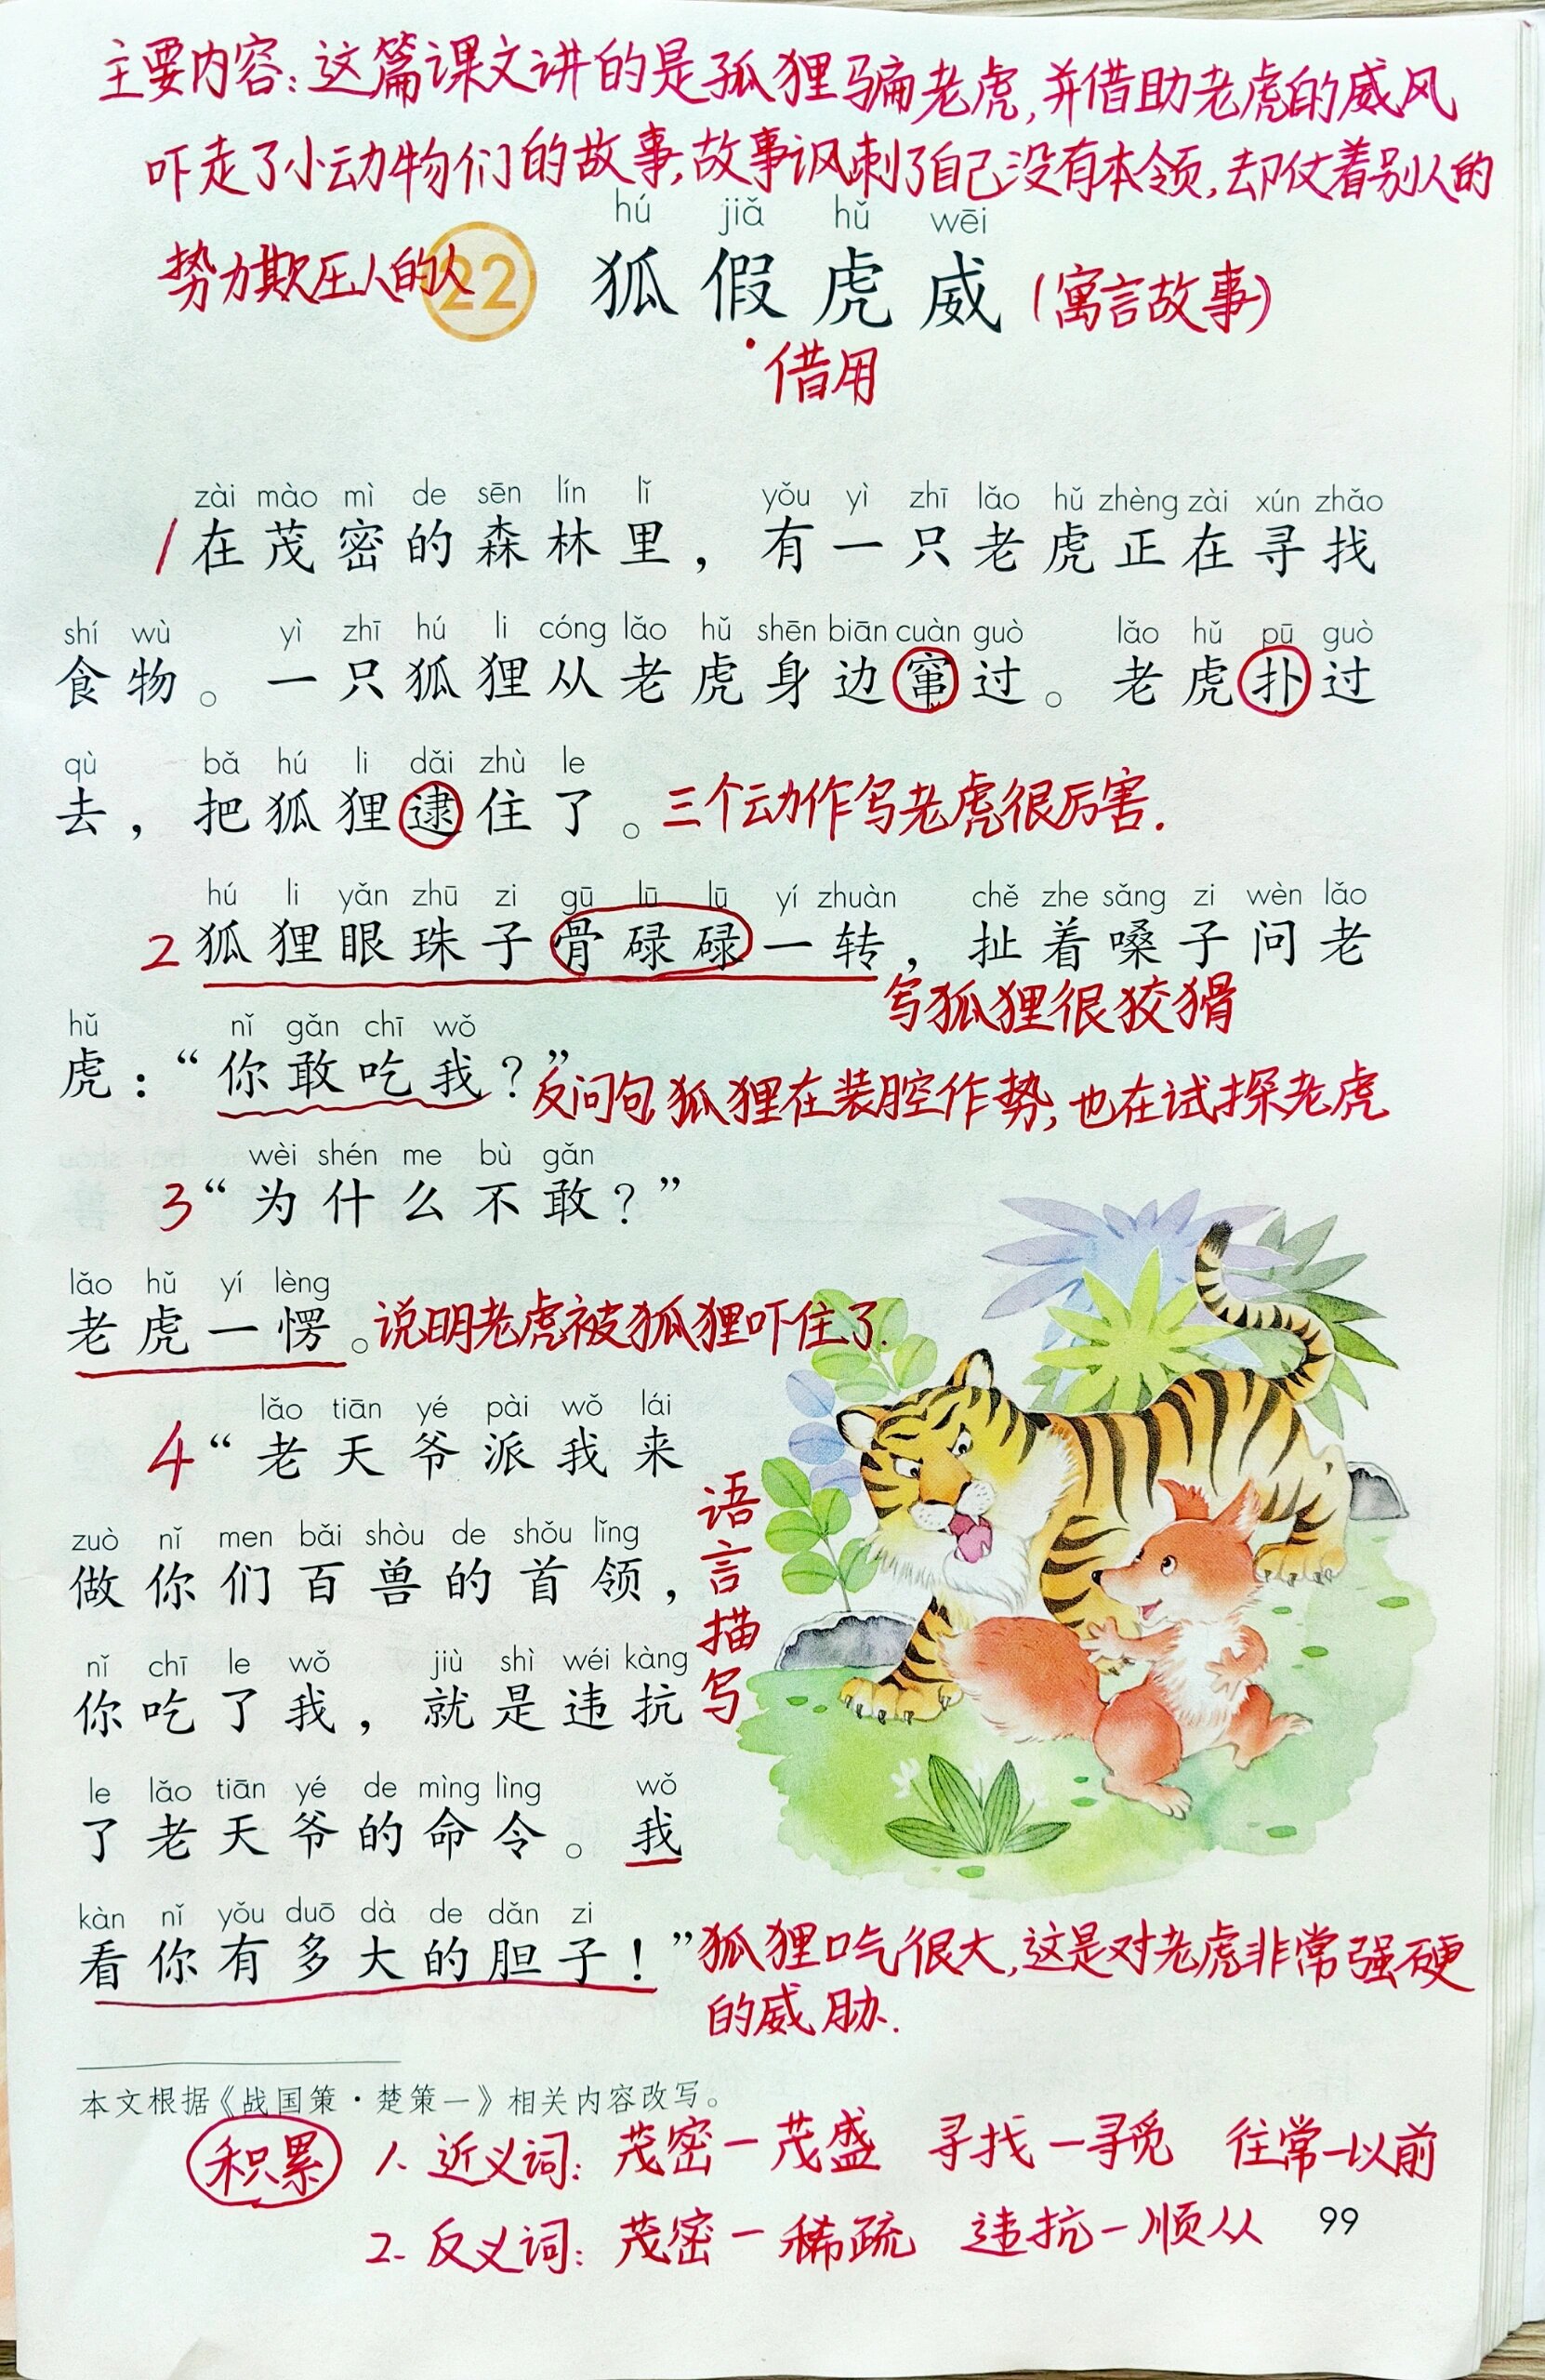 主要内容：这篇课文讲的是狐狸骗老虎,并借助老虎的威风
吓走了小动物们的故事,故事讽刺了自己没有本领,却仗着别人的
势力欺压人的人
hú jiǎ hǔ wēi
22 狐假虎威 (寓言故事)
借用
zài mào mì de sēn lín lǐ yǒu yì zhī lǎo hǔ zhèng zài xún zhǎo
1 在茂密的森林里，有一只老虎正在寻找
shí wù yì zhī hú li cóng lǎo hǔ shēn biān cuàn guò lǎo hǔ pū guò
食物。一只狐狸从老虎身边窜过。老虎扑过
qù bǎ hú li dǎi zhù le
去，把狐狸逮住了。三个动作写老虎很厉害.
hú li yǎn zhū zi gū lū lū yí zhuàn chě zhe sǎng zi wèn lǎo
2 狐狸眼珠子骨碌碌一转，扯着嗓子问老
写狐狸很狡猾
hǔ nǐ gǎn chī wǒ
虎：“你敢吃我？”反问句,狐狸在装腔作势,也在试探老虎
wèi shén me bù gǎn
3 “为什么不敢？”
lǎo hǔ yí lèng
老虎一愣。说明老虎被狐狸吓住了.
lǎo tiān yé pài wǒ lái
4 “老天爷派我来
zuò nǐ men bǎi shòu de shǒu lǐng
做你们百兽的首领，
nǐ chī le wǒ jiù shì wéi kàng
你吃了我，就是违抗
le lǎo tiān yé de mìng lìng wǒ
了老天爷的命令。我
kàn nǐ yǒu duō dà de dǎn zi
看你有多大的胆子！”狐狸口气很大,这是对老虎非常强硬
的威胁.
语言描写
本文根据《战国策·楚策一》相关内容改写。
积累 1. 近义词：茂密—茂盛 寻找—寻觅 往常—以前
99
2. 反义词：茂密—稀疏 违抗—顺从